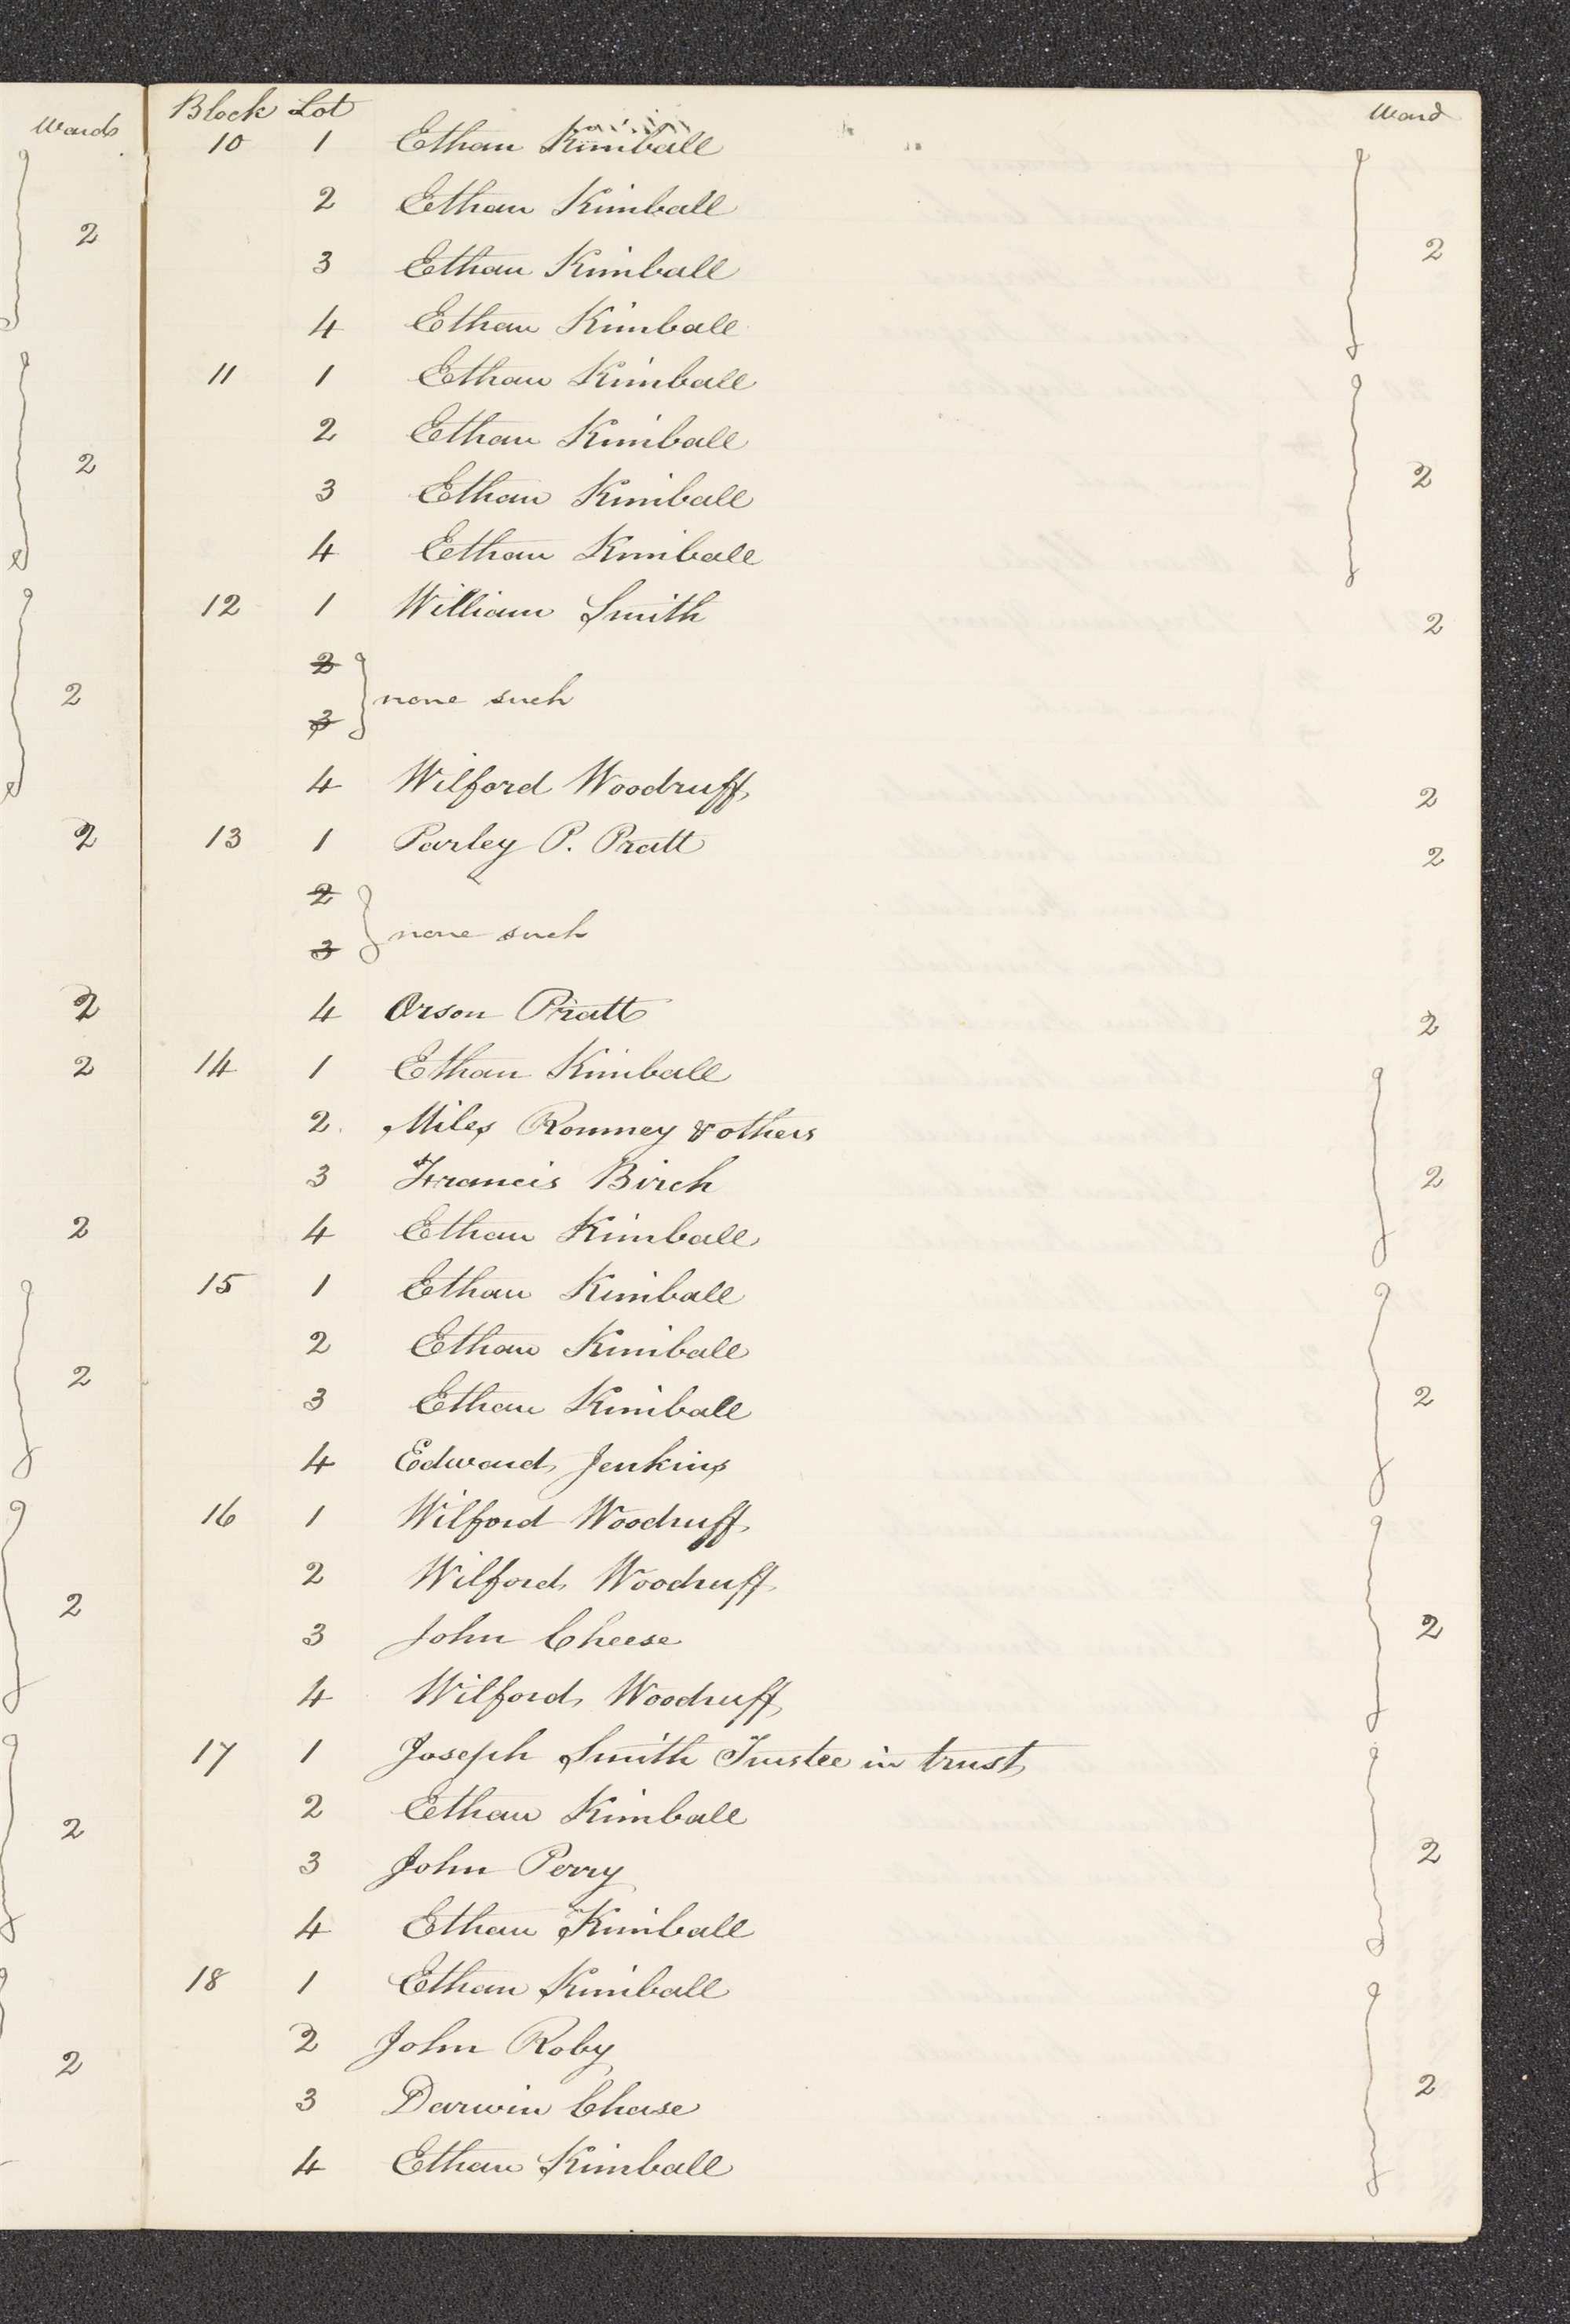 Wards
2
2
2
2
2
2
2
2
2
2
2
Block Lot Ward
10 1 Ethan Kimball
2 Ethan Kimball
3 Ethan Kimball 2
4 Ethan Kimball
11 1 Ethan Kimball
2 Ethan Kimball
3 Ethan Kimball 2
4 Ethan Kimball
12 1 William Smith 2
2
none such
3
4 Wilford Woodruff 2
13 1 Parley P. Pratt 2
2
none such
3
4 Orson Pratt 2
14 1 Ethan Kimball
2. Miles Romney & others
3 Francis Birch 2
4 Ethan Kimball
15 1 Ethan Kimball
2 Ethan Kimball
3 Ethan Kimball 2
4 Edward Jenkins
16 1 Wilford Woodruff
2 Wilford Woodruff
3 John Cheese 2
4 Wilford Woodruff
17 1 Joseph Smith Trustee in trust
2 Ethan Kimball
3 John Perry 2
4 Ethan Kimball
18 1 Ethan Kimball
2 John Roby
3 Darwin Chase 2
4 Ethan Kimball